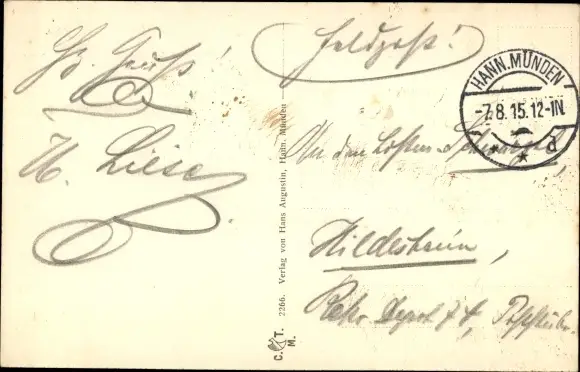 Gruß!
H. Liese.
Feldpost!
HANN. MÜNDEN
-7.8.15.12-1N.
* * d
An den
Hildesheim,
Rekr. Depot 74,
2266. Verlag von Hans Augustin, Hann. Münden
C. T.
M.